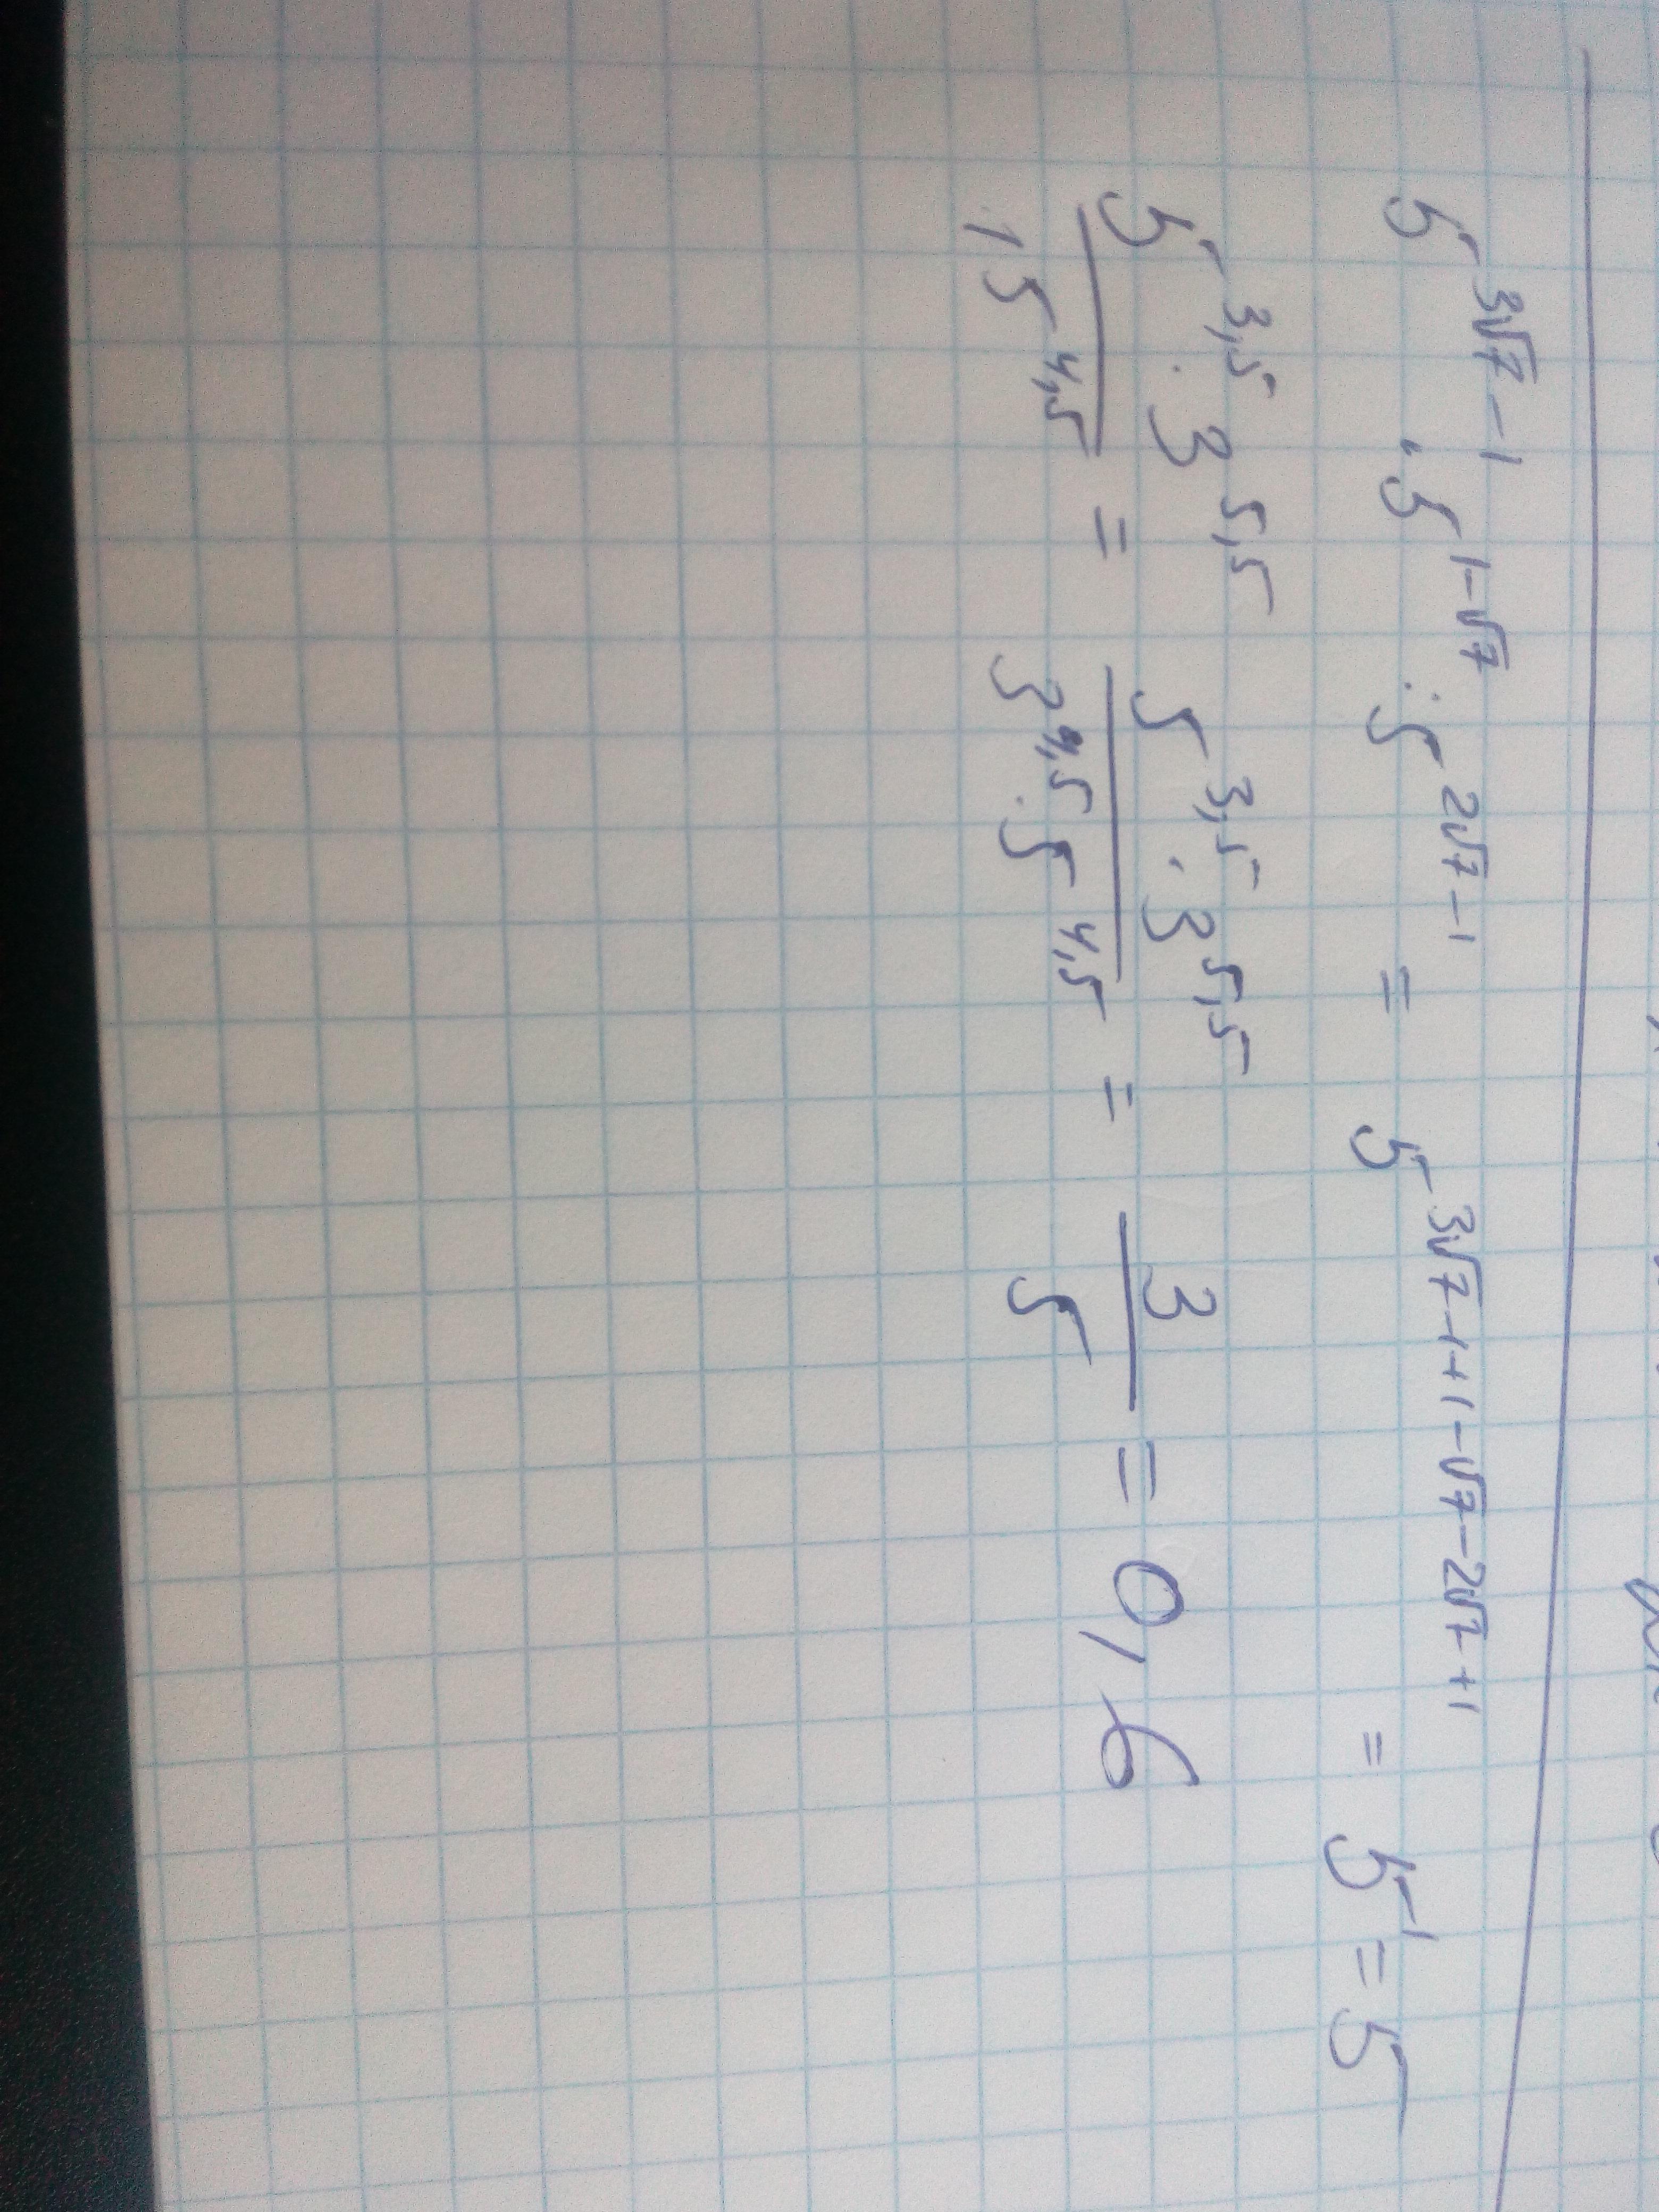 5^{3√7-1} · 5^{1-√7} : 5^{2√7-1} = 5^{3√7-1+1-√7-2√7+1} = 5^1 = 5
\frac{5^{3,5} · 3^{5,5}}{15^{4,5}} = \frac{5^{3,5} · 3^{5,5}}{3^{4,5} · 5^{4,5}} = \frac{3}{5} = 0,6